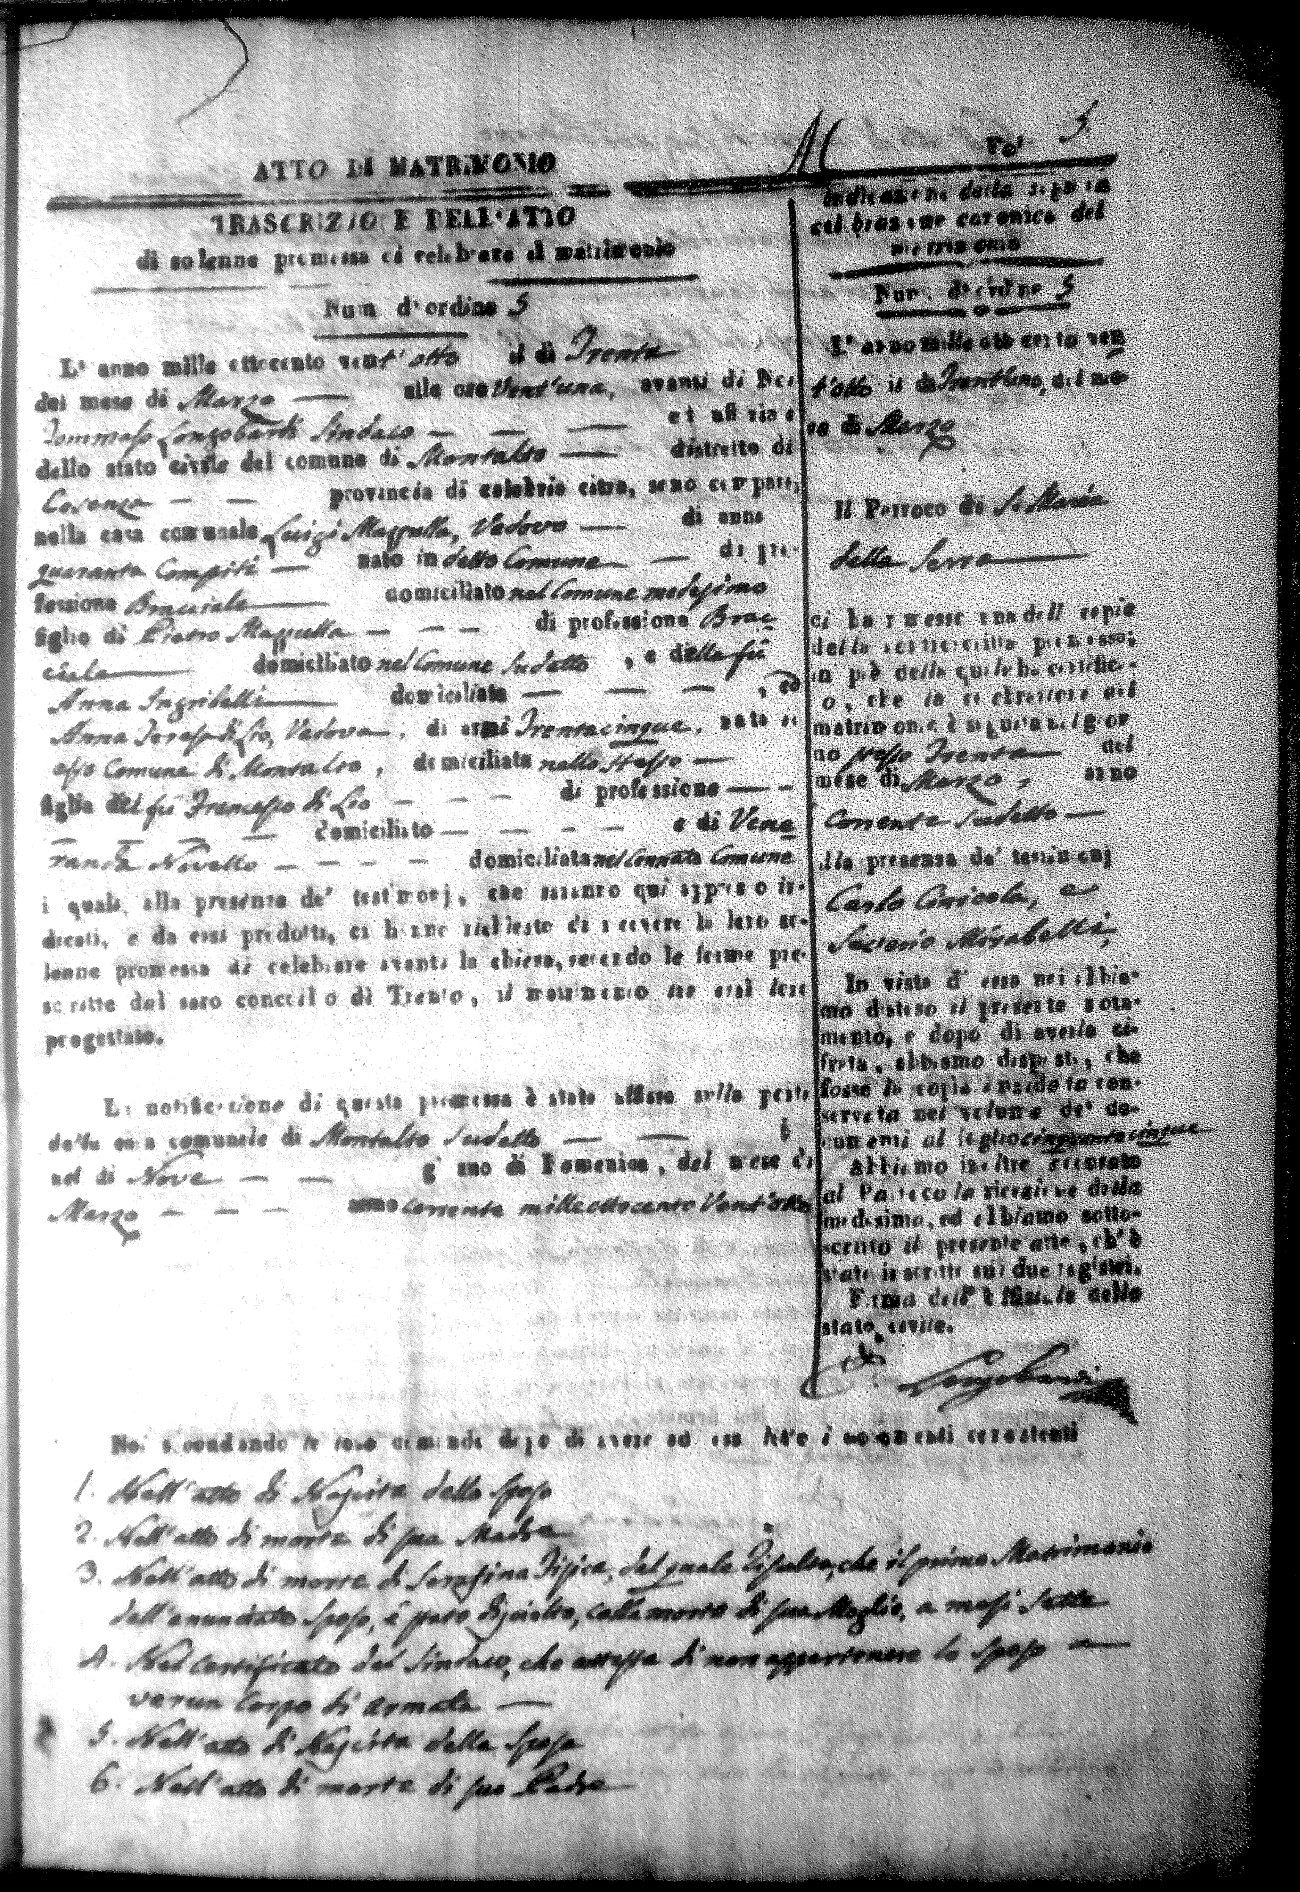 Fo' 5
ATTO DI MATRIMONIO
TRASCRIZIONE DELL'ATTO
di solenne promessa di celebrare il matrimonio
Num d'ordine 5
L' anno mille ottocento vent'otto il di Trenta
del mese di Marzo — alle ore Vent'una, avanti di Noi
Tommaso Longobardi Sindaco — — — ed uffiziale
dello stato civile del comune di Montalto — distretto di
Cosenza — — provincia di calabria citra, sono comparsi
nella casa comunale Luigi Mazzulla, Vedovo — di anni
quaranta Compiti — nato in detto Comune — di pro-
fessione Bracciale — domiciliato nel Comune medesimo
figlio di Pietro Mazzulla — — — di professione Brac
ciale — domiciliato nel Comune sudetto, e della fù
Anna Ingribelli — domiciliata — — —, ed
Anna Teresa di Lio, Vedova, di anni Trentacinque, nata in
esso Comune di Montalto, domiciliata nello stesso —
figlia del fù Francesco di Lio — — — di professione — —
— — — — domiciliato — — — — e di Vene
randa Novello — — — — domiciliata nel Connato Comune
i quali alla presenza de' testimonj, che saranno qui appresso in-
dicati, e da essi prodotti, ci hanno richiesto di ricevere la loro so-
lenne promessa di celebrare avanti la chiesa, secondo le forme pre-
scritte dal sacro concilio di Trento, il matrimonio tra essi loro
progettato.
La notificazione di questa promessa è stata affissa sulla porta
della casa comunale di Montalto sudetto — —
nel di Nove — — giorno di Domenica, del mese di
Marzo — — — anno corrente mille ottocento Vent'otto
Indicazione della seguita
celebrazione canonica del
matrimonio
Num. d'ordine 5
L' anno mille ottocento ven
t'otto il di Trent'uno, del me-
se di Marzo
Il Parroco di S. Maria
della Serra —
ci ha rimesso una delle copie
della soprascritta promessa;
in piè della quale ha certifica-
to, che la celebrazione del
matrimonio è seguita nel gior
no stesso Trenta — del
mese di Marzo, anno
Corrente sudetto —
alla presenza de' testimonj
Carlo Coricola, e
Saverio Mirabelli,
In vista d' essa noi abbia-
mo disteso il presente nota-
mento, e dopo di averla ci-
frata, abbiamo disposto, che
fosse la copia anzidetta con-
servata nel volume de' do-
cumenti al foglio cinquantacinque
Abbiamo inoltre accusato
al Parroco la ricezione della
medesima, ed abbiamo sotto-
scritto il presente atto, ch'è
stato inscritto sui due registri.
Firma dell' Uffiziale dello
stato civile.
Longobardi
Noi secondando le loro domande dopo di avere ad essi letto i documenti consistenti
1. Nell'atto di Nascita dello sposo
2. Nell'atto di morte di sua Madre
3. Nell'atto di morte di Serafina Fisica, dal quale risulta, che il primo Matrimonio
dell'enunciato sposo, è stato disciolto, colla morte di sua Moglie, a mesi Sette
4. Nel certificato del Sindaco, che attesta di non appartenere lo sposo a —
verun Corpo di armata —
5. Nell'atto di Nascita della sposa
6. Nell'atto di morte di suo Padre —